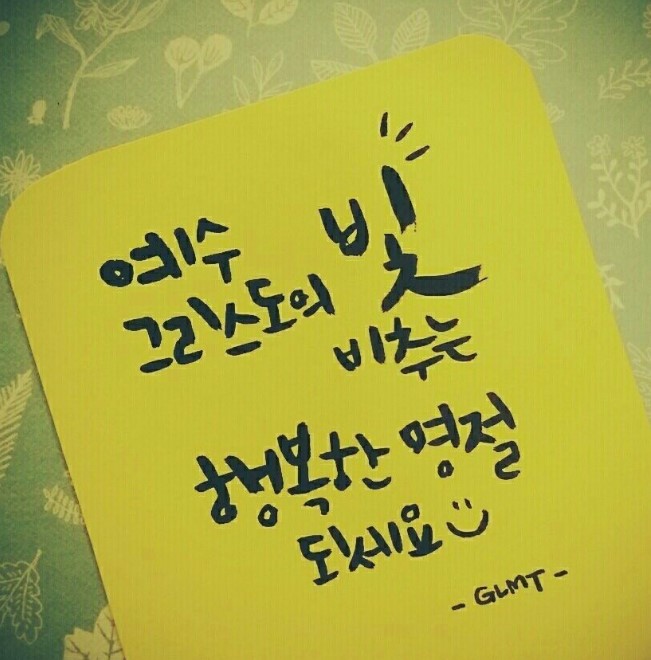 예수
그리스도의 빛
비추는
행복한 명절
되세요
- GLMT -